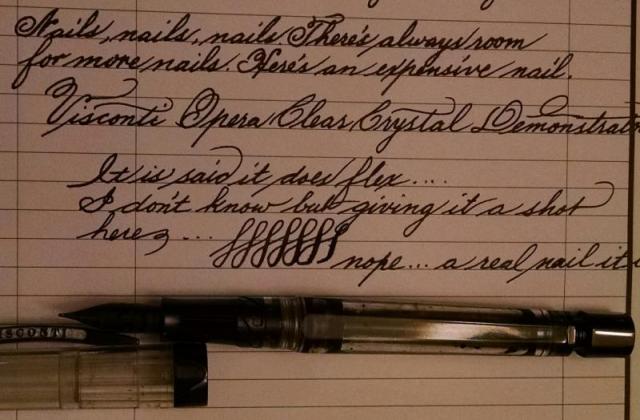 Nails, nails, nails There's always room
for more nails. Here's an expensive nail.
Visconti Opera Clear Crystal Demonstrator
It is said it does flex....
I don't know but giving it a shot
here ...
nope... a real nail it
VISCONTI